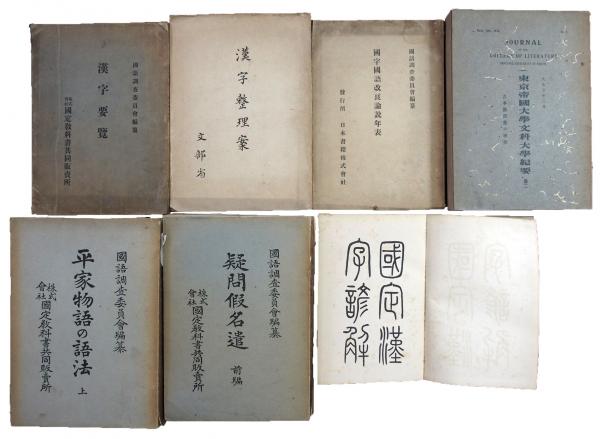 國語調查委員會編纂
漢字要覽
株式會社 國定教科書共同販賣所
漢字整理案
文部省
國語調查委員會編纂
國字國語改良論說年表
發行所 日本書籍株式會社
JOURNAL
OF THE
COLLEGE OF LITERATURE
東京帝國大學文科大學紀要
國語調查委員會編纂
平家物語の語法
上
株式會社 國定教科書共同販賣所
國語調查委員會編纂
疑問假名遣
前編
株式會社 國定教科書共同販賣所
國定漢
字諺解